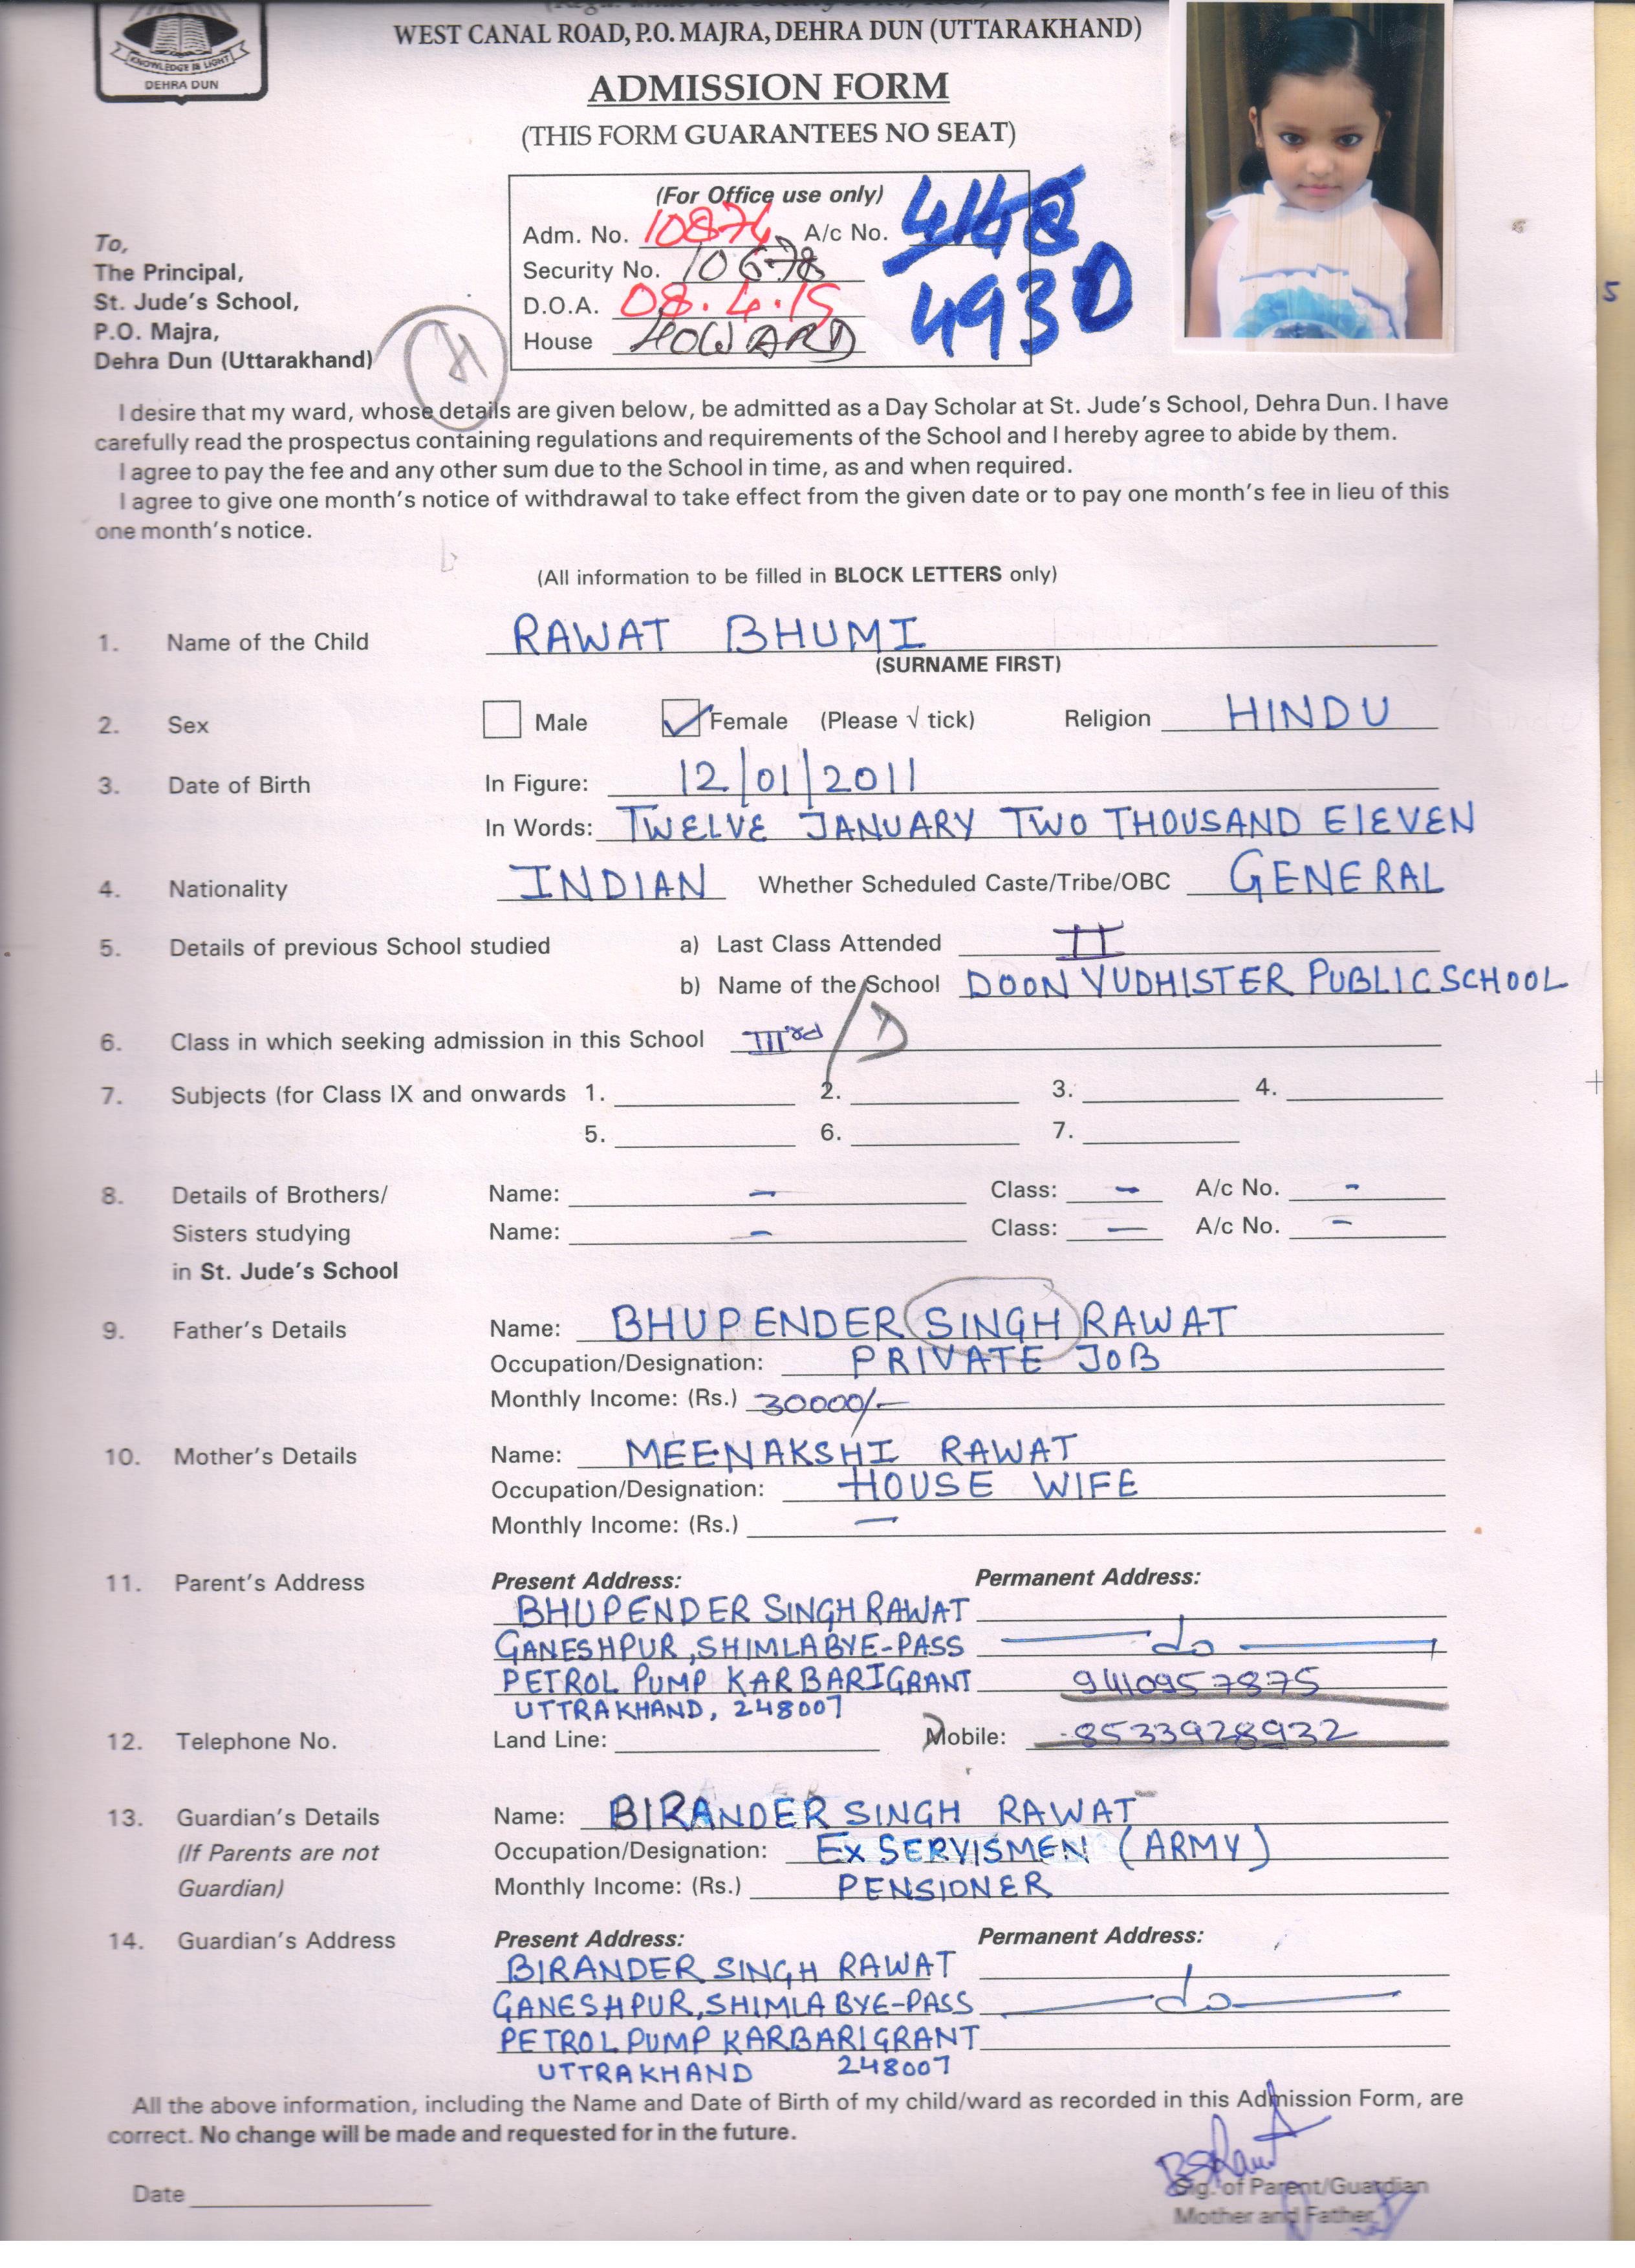 WEST CANAL ROAD, P.O. MAJRA, DEHRA DUN (UTTARAKHAND)
KNOWLEDGE IS LIGHT
DEHRA DUN
ADMISSION FORM
(THIS FORM GUARANTEES NO SEAT)
(For Office use only)
Adm. No. 10874 A/c No.
Security No. 10678
493D
D.O.A. 08.4.19
House HOWARD
To,
The Principal,
St. Jude's School,
P.O. Majra,
Dehra Dun (Uttarakhand)
I desire that my ward, whose details are given below, be admitted as a Day Scholar at St. Jude's School, Dehra Dun. I have
carefully read the prospectus containing regulations and requirements of the School and I hereby agree to abide by them.
I agree to pay the fee and any other sum due to the School in time, as and when required.
I agree to give one month's notice of withdrawal to take effect from the given date or to pay one month's fee in lieu of this
one month's notice.
(All information to be filled in BLOCK LETTERS only)
1. Name of the Child RAWAT BHUMI
(SURNAME FIRST)
2. Sex Male Female (Please √ tick) Religion HINDU
3. Date of Birth In Figure: 12/01/2011
In Words: TWELVE JANUARY TWO THOUSAND ElEVEN
4. Nationality INDIAN Whether Scheduled Caste/Tribe/OBC GENERAL
5. Details of previous School studied a) Last Class Attended II
b) Name of the School DOON YUDHISTER PUBLIC SCHOOL
6. Class in which seeking admission in this School IIIrd / D
7. Subjects (for Class IX and onwards 1. 2. 3. 4.
5. 6. 7.
8. Details of Brothers/ Name: — Class: — A/c No. -
Sisters studying Name: — Class: — A/c No. -
in St. Jude's School
9. Father's Details Name: BHUPENDER SINGH RAWAT
Occupation/Designation: PRIVATE JOB
Monthly Income: (Rs.) 30000/-
10. Mother's Details Name: MEENAKSHI RAWAT
Occupation/Designation: HOUSE WIFE
Monthly Income: (Rs.) —
11. Parent's Address Present Address: Permanent Address:
BHUPENDER SINGH RAWAT
GANESHPUR, SHIMLA BYE-PASS — do —
PETROL PUMP KARBARI GRANT 9410957875
UTTRAKHAND, 248007
12. Telephone No. Land Line: Mobile: 8533928932
13. Guardian's Details Name: BIRANDER SINGH RAWAT
(If Parents are not Occupation/Designation: EX SERVISMEN (ARMY)
Guardian) Monthly Income: (Rs.) PENSIONER
14. Guardian's Address Present Address: Permanent Address:
BIRANDER SINGH RAWAT
GANESHPUR, SHIMLA BYE-PASS — do —
PETROL PUMP KARBARI GRANT
UTTRAKHAND 248007
All the above information, including the Name and Date of Birth of my child/ward as recorded in this Admission Form, are
correct. No change will be made and requested for in the future.
BSRawat
Date Sig. of Parent/Guardian
Mother and Father